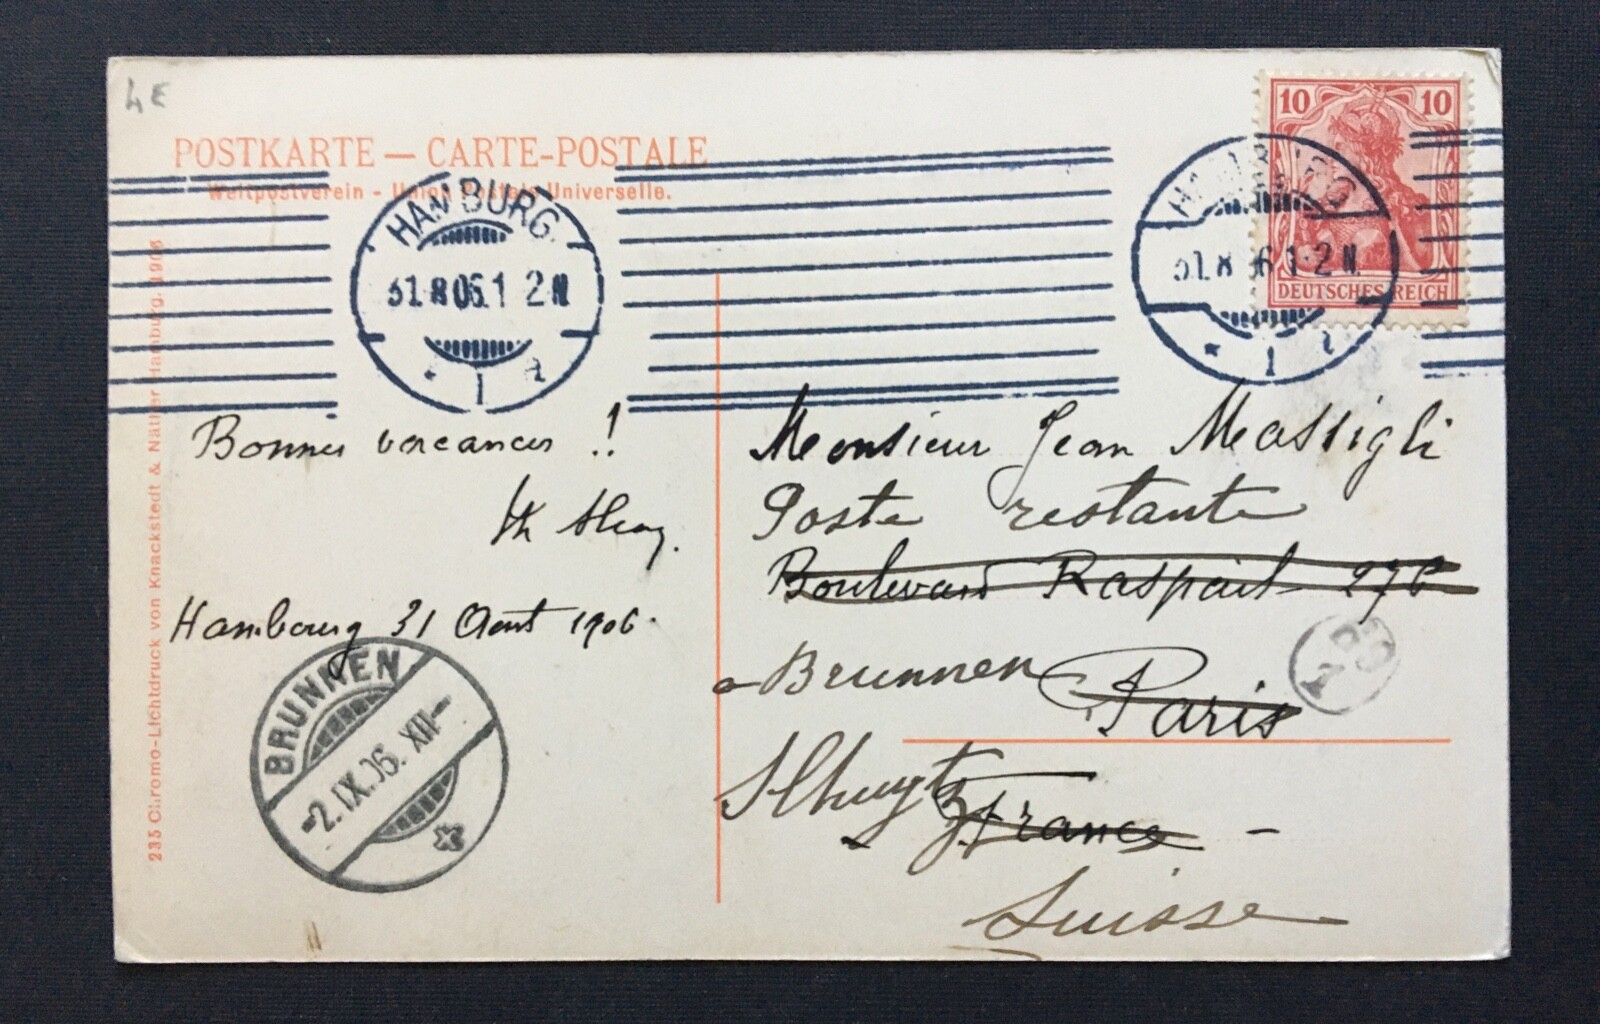 4E
POSTKARTE — CARTE-POSTALE
Weltpostverein - Union Postale Universelle.
HAMBURG
31.8.06.1-2N
* 1 a
HAMBURG
31.8.06.1-2N
* 1
10 10
DEUTSCHES REICH
Bonnes vacances !
Hambourg 31 Aout 1906.
BRUNNEN
-2.IX.06. XII-
Monsieur Jean Massigli
Poste restante
Boulevard Raspail 276
Brunnen Paris
France -
Suisse
233 Chromo-Lichtdruck von Knackstedt & Näther Hamburg. 1906